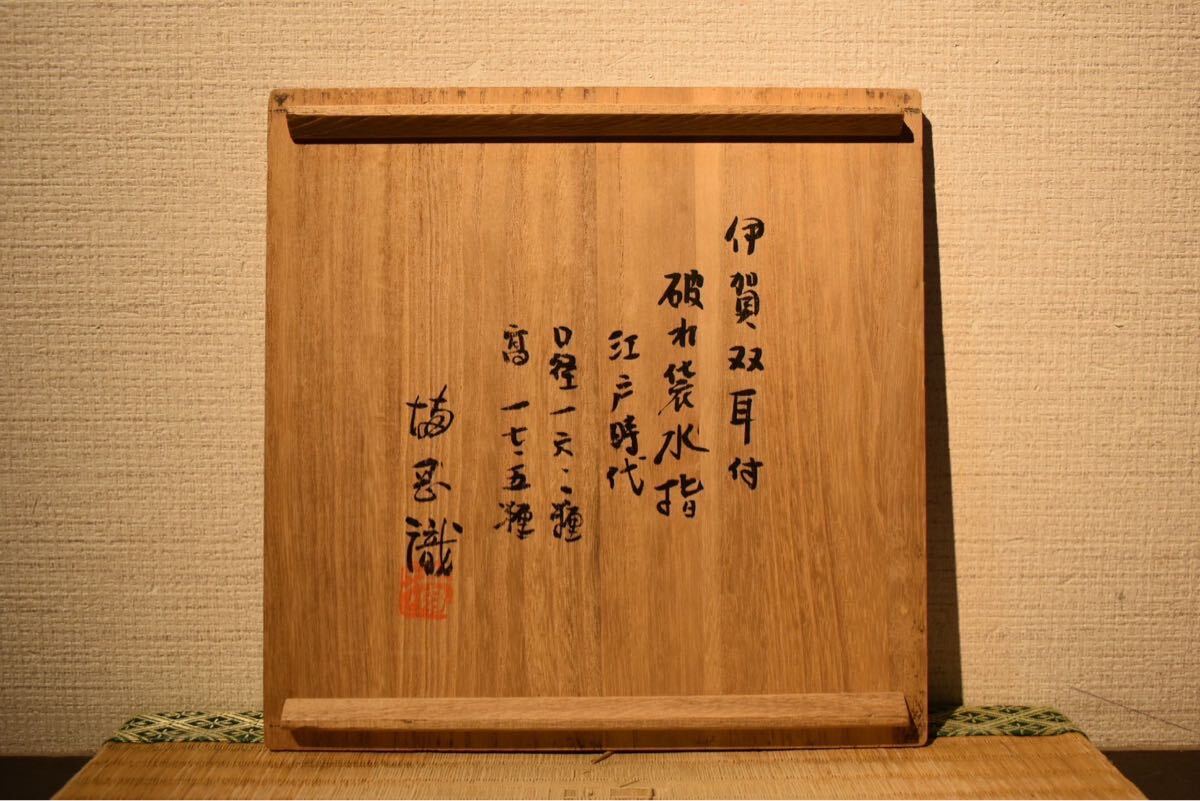 伊賀双耳付
破れ袋水指
江戸時代
口径一六・二糎
高 一七・五糎
識